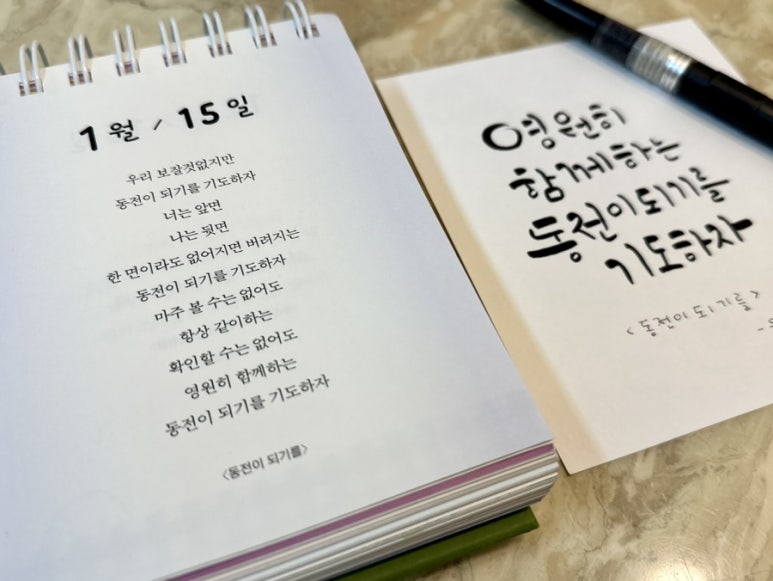 1월 / 15일
우리 보잘것없지만
동전이 되기를 기도하자
너는 앞면
나는 뒷면
한 면이라도 없어지면 버려지는
동전이 되기를 기도하자
마주 볼 수는 없어도
항상 같이하는
확인할 수는 없어도
영원히 함께하는
동전이 되기를 기도하자
<동전이 되기를>
영원히
함께하는
동전이되기를
기도하자
<동전이 되기를>